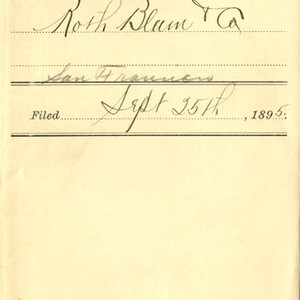 Roth Blum & Co
San Francisco
Filed Sept 25th, 1895.